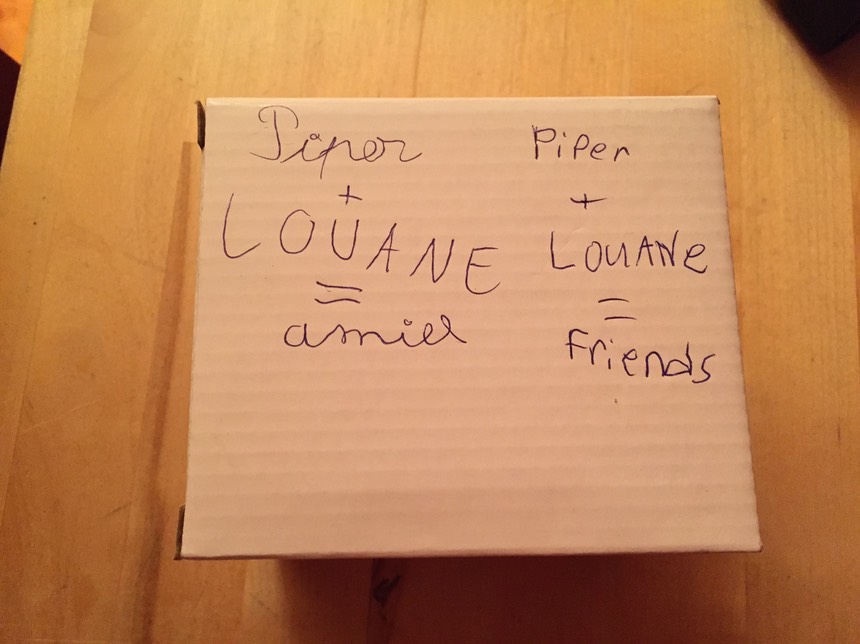 Piper
+
LOUANE
=
amies
Piper
+
LOUANE
=
friends